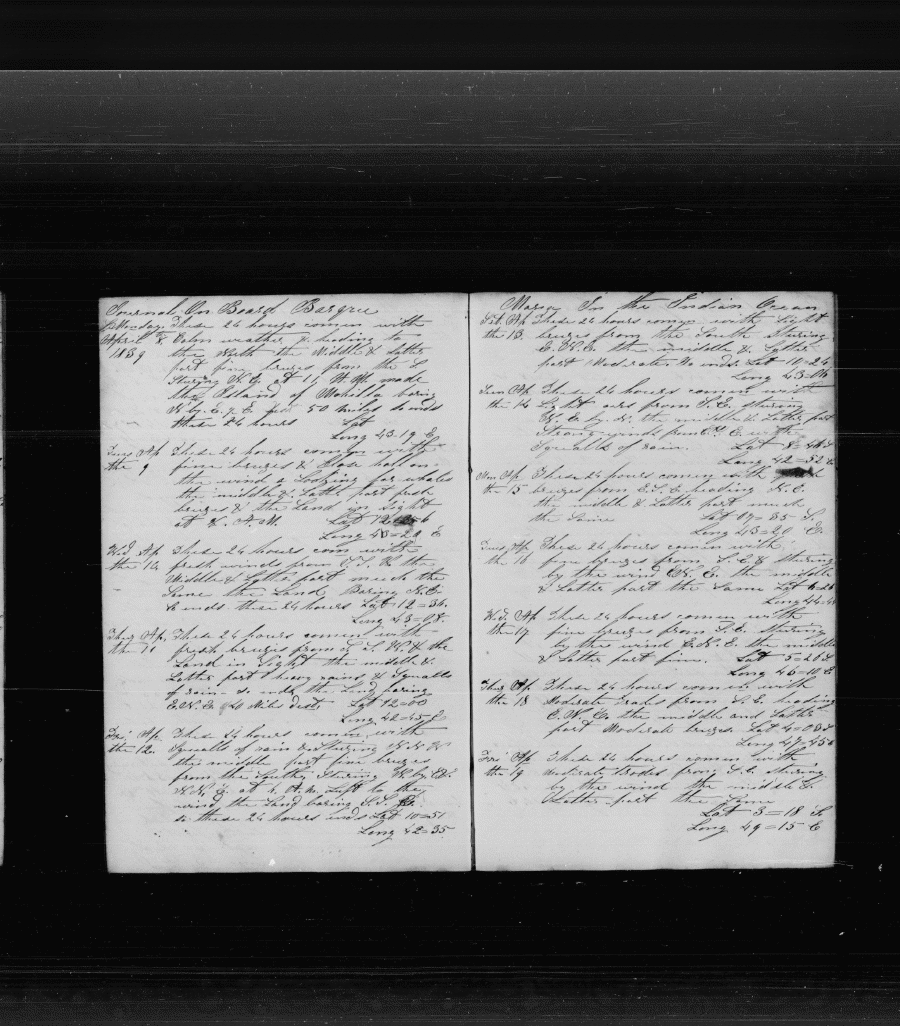 Journal On Board Barque
Monday These 24 hours comen with
April 8 Calm weather & heading to
1839 the North the Middle & Latter
part fine bruzes from the S
Stering N.E. at 11 A.M. made
the Island of Mohilla baring
N by E. 50 Miles so ends
these 24 hours Lat
Long 43.19 E
Tues Ap These 24 hours comen with
the 9 fine bruzes & Close hall on
the wind a Looking for whales
the middle & Latter part fresh
bruzes & the Land in Sight
at A.M Lat 12
Long 43=29 E
Wed Ap These 24 hours com with
the 10 fresh winds from the
Middle & Latter part much the
Same the Land Baring N.E.
so ends these 24 hours Lat 12=36
Long 43=08
Thus Ap These 24 hours comen with
the 11 fresh bruzes from S.W. & the
Land in Sight the middle &
Latter part heavy rains & Squalls
of rain so ends the Land baring
E.N.E. 20 Miles Dist Lat 12=00
Long 42=45 E
Fri Ap These 24 hours comen with
the 12 Squalls of rain Stering
the middle part fine bruzes
from the South Stering N by E.
at A.M. Luft to the
wind the Land baring S.
so these 24 hours ends Lat 10=51
Long 42=35
In the Indian Ocean
Sat Ap These 24 hours comen with Light
the 13 bruzes from the South Stering
E.N.E. the middle & Latter
part Moderate So ends Lat 10=24
Long 43=06
Sun Ap These 24 hours comen with
the 14 Light airs from S.E. stering
N.E. by N. the middle & Latter part
Strong winds from E with
Squalls of rain. Lat 8=46 S
Long 42=52 E
Mo Ap These 24 hours comen with
the 15 bruzes from heading N.E.
the middle & Latter part much
the Same Lat 07=35 S.
Long 43=20 E.
Tues Ap These 24 hours comen with
the 16 fine bruzes from S.E. & Stering
by the wind N.E. the middle
& Latter part the Same Lat 6=26
Long 44
Wed Ap These 24 hours comen with
the 17 fine bruzes from S.E. Stering
by the wind E.N.E. the middle
& Latter part fine. Lat 5=20 S
Long 46=10 E
Thus Ap These 24 hours comen with
the 18 Moderate Trades from S.E. heading
E.N.E. the middle and Latter
part Moderate bruzes Lat 4=08 S
Long 47=45 E
Fri Ap These 24 hours comen with
the 19 Moderate Trades from S.E. Stering
by the wind the middle &
Latter part the Same
Lat 3=18 S.
Long 49=15 E